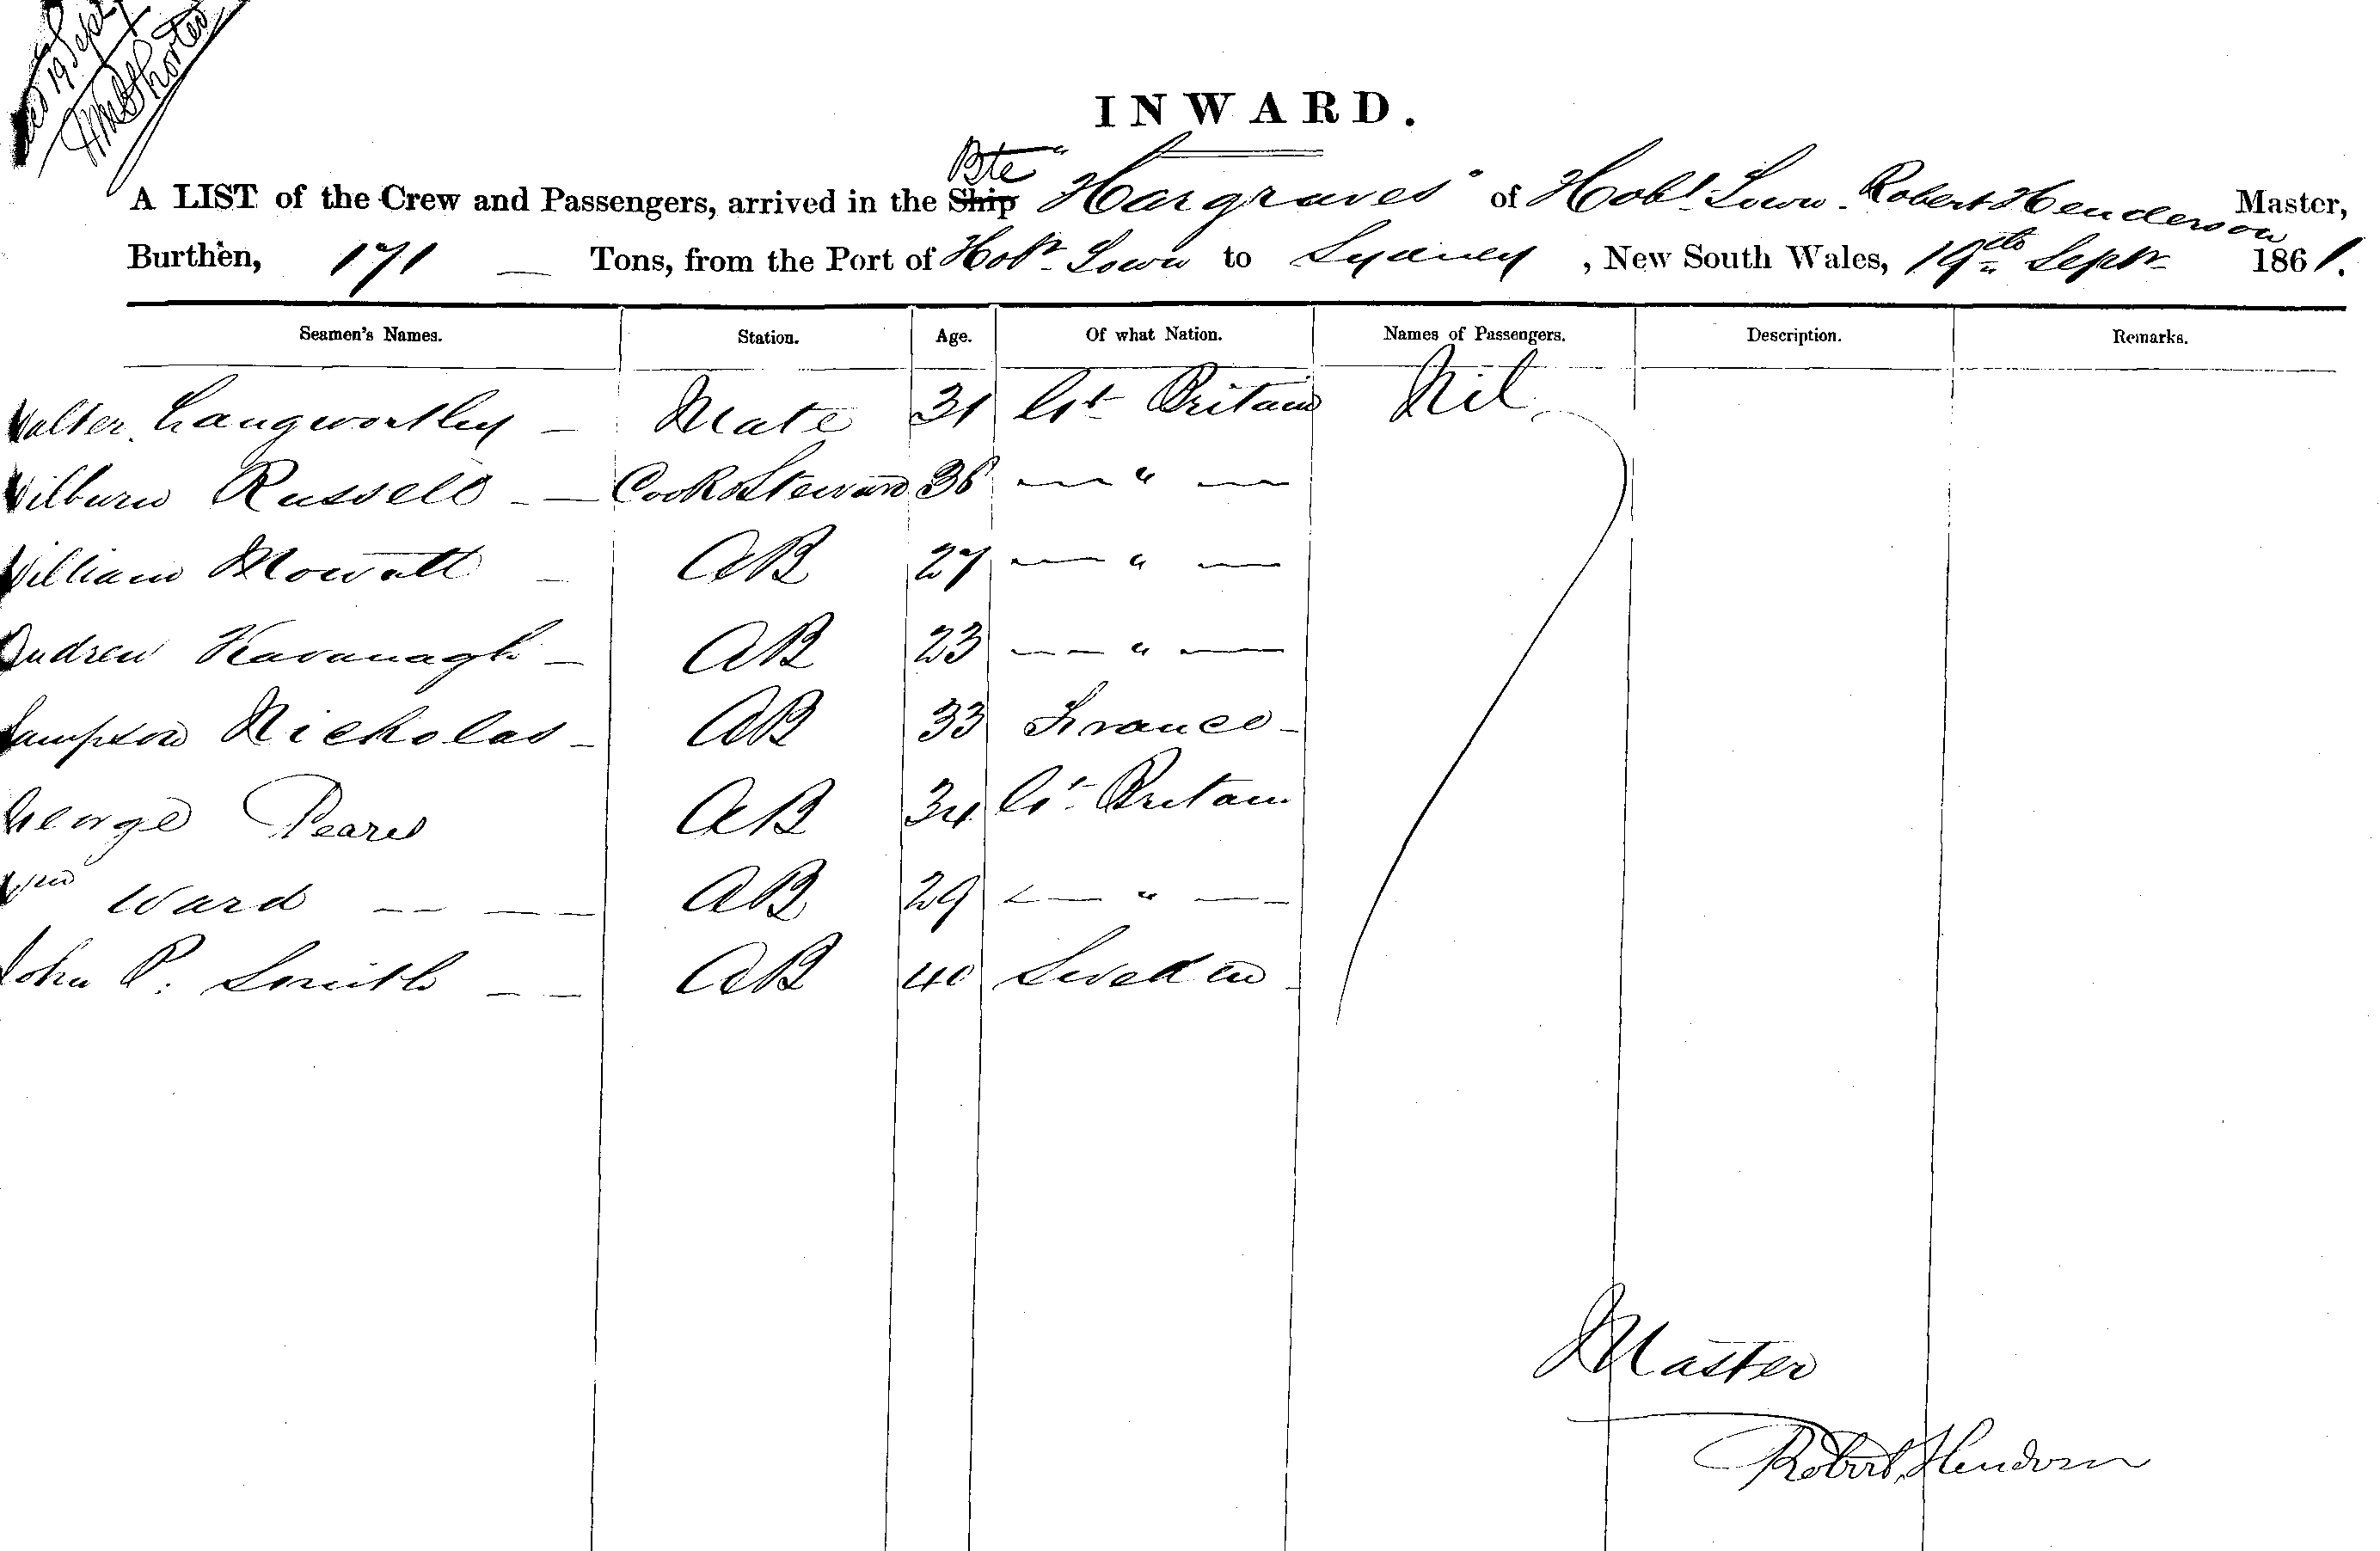 19 Sept
INWARD.
A LIST of the Crew and Passengers, arrived in the Ship Bte "Hargraves" of Hobt Town Robert Henderson Master,
Burthen, 171 — Tons, from the Port of Hobt Town to Sydney, New South Wales, 19th Septr 1861.
Seamen's Names. Station. Age. Of what Nation. Names of Passengers. Description. Remarks.
Walter Langworthy — Mate 31 Gt Britain Nil
Wilburn Russell — Cook & Steward 36 — " —
William Mowatt — AB 27 — " —
Andrew Kavanagh — AB 23 — — " —
Sampson Nickolas — AB 33 France —
George AB 34 Gt Britain
Wm Ward — — AB 29 — " —
John P. Smith — — AB 40 Sweden
Master
Robert Henderson